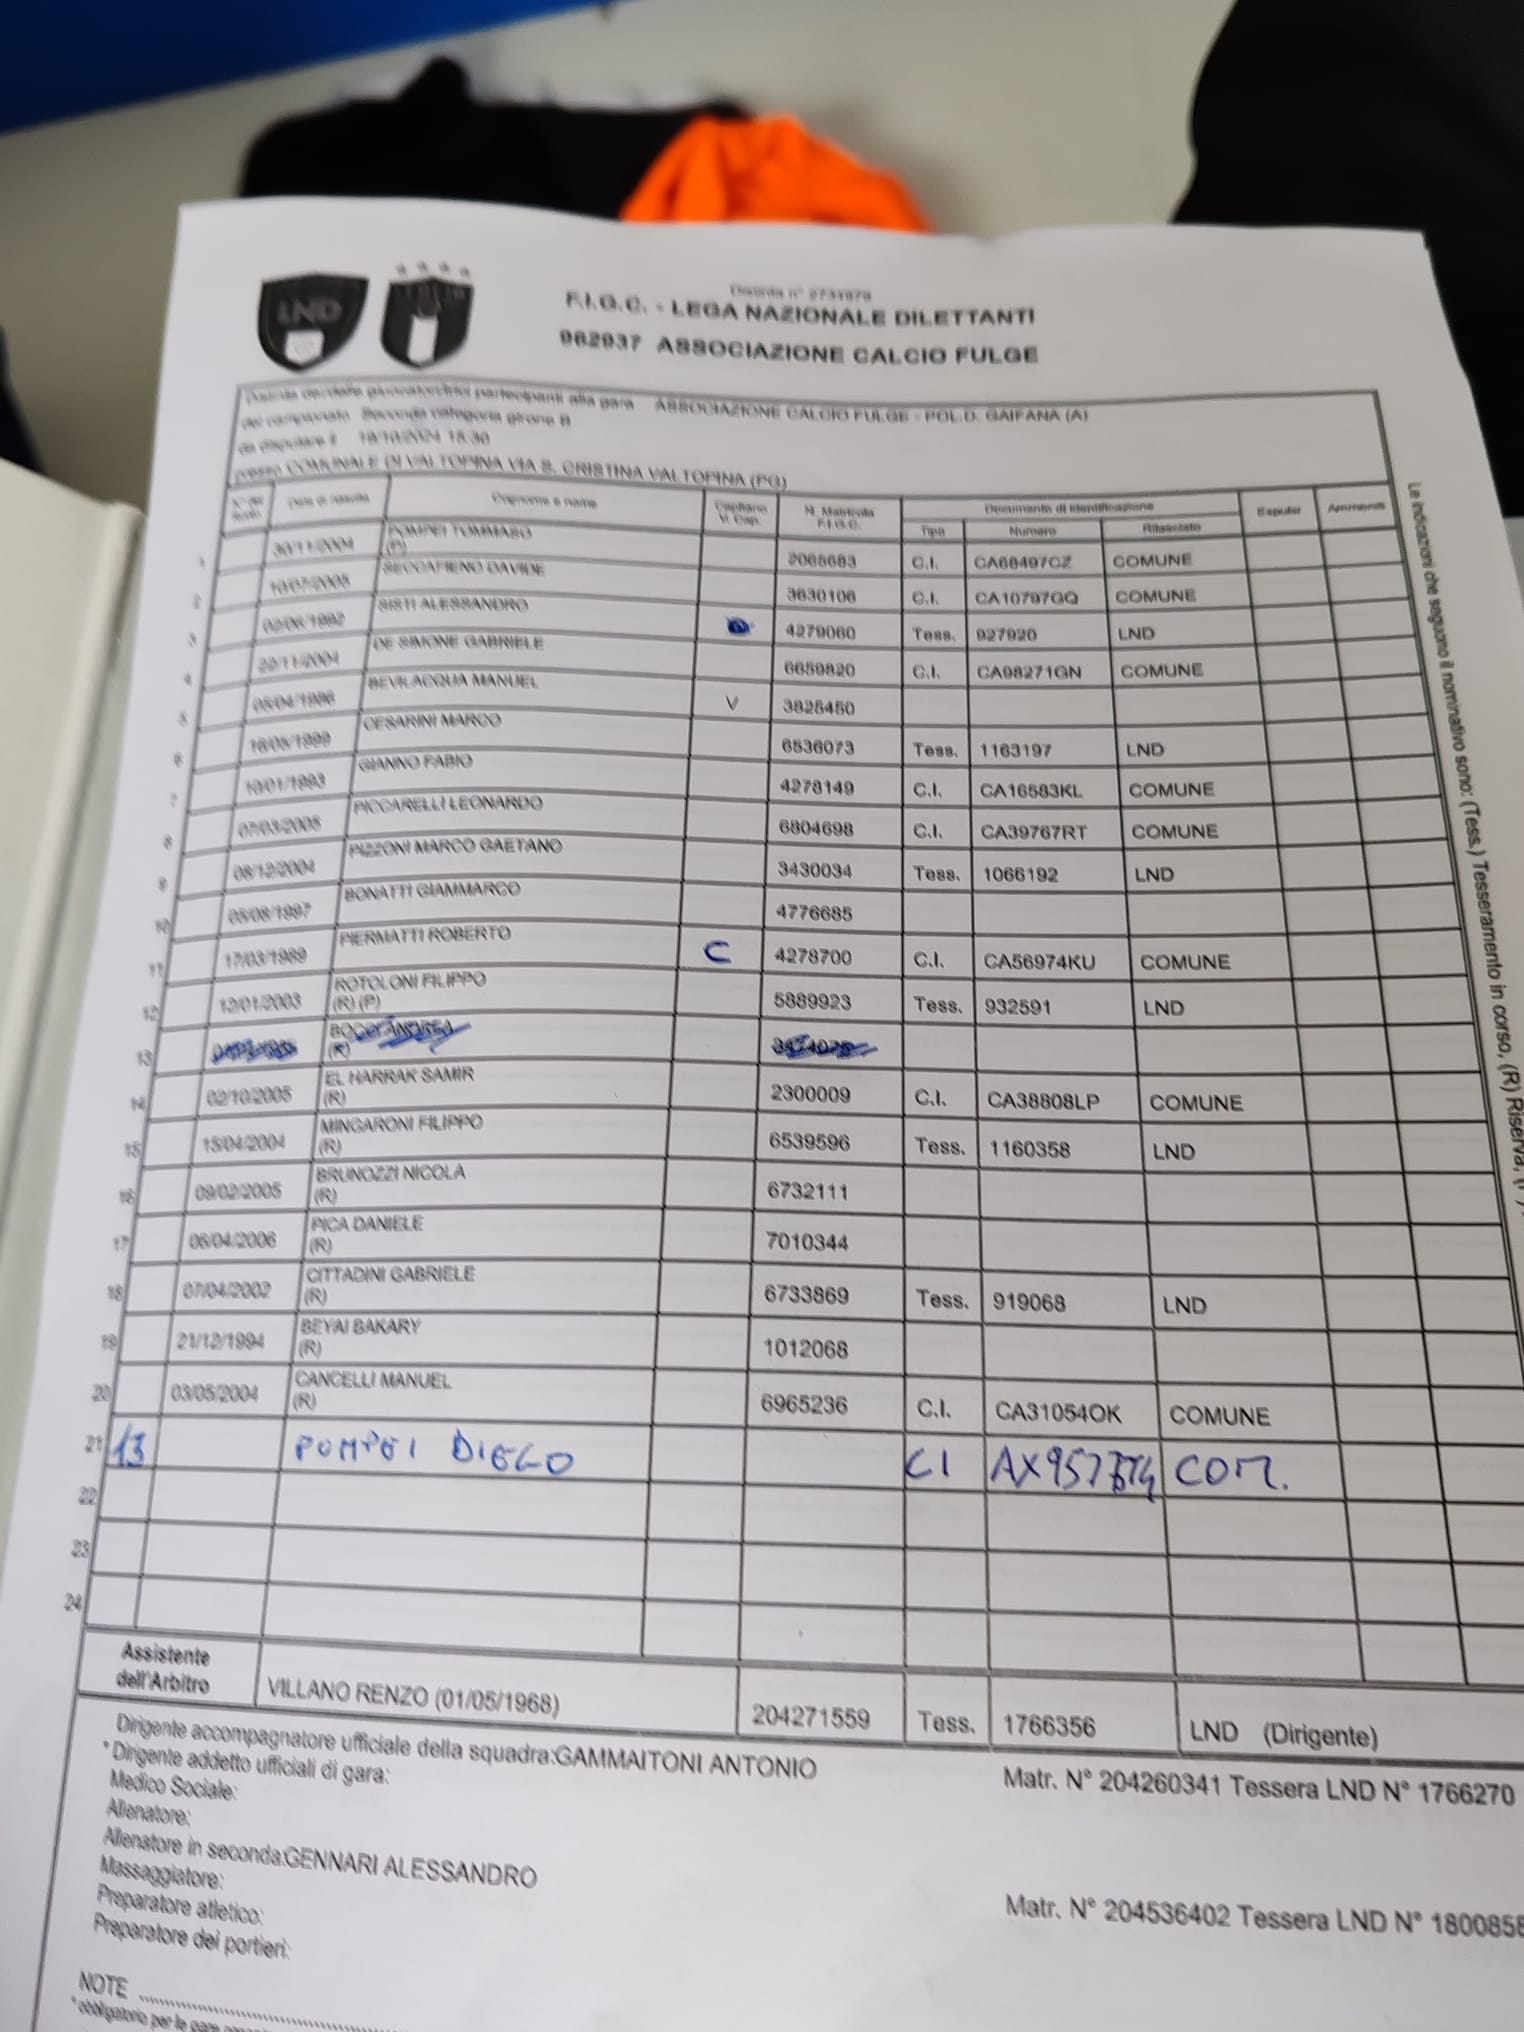 LND
Distinta n° 2731979
F.I.G.C. - LEGA NAZIONALE DILETTANTI
962937 ASSOCIAZIONE CALCIO FULGE
partecipanti alla gara ASSOCIAZIONE CALCIO FULGE - POL.D. GAIFANA (A)
del campionato Seconda categoria girone B
da disputare il 19/10/2024 15:30
presso COMUNALE DI VALTOPINA VIA S. CRISTINA VALTOPINA (PG)
Data di nascita Cognome e nome Capitano V. Cap. N. Matricola F.I.G.C. Documento di identificazione Espulsi Ammoniti
Tipo Numero Rilasciato
1 30/11/2004 POMPEI TOMMASO (P) 2065683 C.I. CA68497CZ COMUNE
2 10/07/2005 DAVIDE 3630106 C.I. CA10797GQ COMUNE
3 02/06/1992 SISTI ALESSANDRO 4279060 Tess. 927920 LND
4 DE SIMONE GABRIELE 6659820 C.I. CA98271GN COMUNE
5 05/04/1996 BEVILACQUA MANUEL V 3825450
6 16/05/1999 CESARINI MARCO 6536073 Tess. 1163197 LND
7 10/01/1993 GIANNO FABIO 4278149 C.I. CA16583KL COMUNE
8 07/03/2005 PICCARELLI LEONARDO 6804698 C.I. CA39767RT COMUNE
9 08/12/2004 PIZZONI MARCO GAETANO 3430034 Tess. 1066192 LND
10 05/08/1997 BONATTI GIAMMARCO 4776685
11 17/03/1989 PIERMATTI ROBERTO C 4278700 C.I. CA56974KU COMUNE
12 12/01/2003 ROTOLONI FILIPPO (R) (P) 5889923 Tess. 932591 LND
13 ANDREA (R)
14 02/10/2005 EL HARRAK SAMIR (R) 2300009 C.I. CA38808LP COMUNE
15 15/04/2004 MINGARONI FILIPPO (R) 6539596 Tess. 1160358 LND
16 09/02/2005 BRUNOZZI NICOLA (R) 6732111
17 06/04/2006 PICA DANIELE (R) 7010344
18 07/04/2002 CITTADINI GABRIELE (R) 6733869 Tess. 919068 LND
19 21/12/1994 BEYAI BAKARY (R) 1012068
20 03/05/2004 CANCELLI MANUEL (R) 6965236 C.I. CA31054OK COMUNE
21 13 POMPEI DIEGO CI COM.
22
23
24
Assistente dell'Arbitro VILLANO RENZO (01/05/1968) 204271559 Tess. 1766356 LND (Dirigente)
Dirigente accompagnatore ufficiale della squadra:GAMMAITONI ANTONIO Matr. N° 204260341 Tessera LND N° 1766270
* Dirigente addetto ufficiali di gara:
Medico Sociale:
Allenatore:
Allenatore in seconda:GENNARI ALESSANDRO Matr. N° 204536402 Tessera LND N° 1800858
Massaggiatore:
Preparatore atletico:
Preparatore dei portieri:
NOTE
* obbligatorio per le gare
Le indicazioni che seguono il nominativo sono: (Tess.) Tesseramento in corso, (R) Riserva,